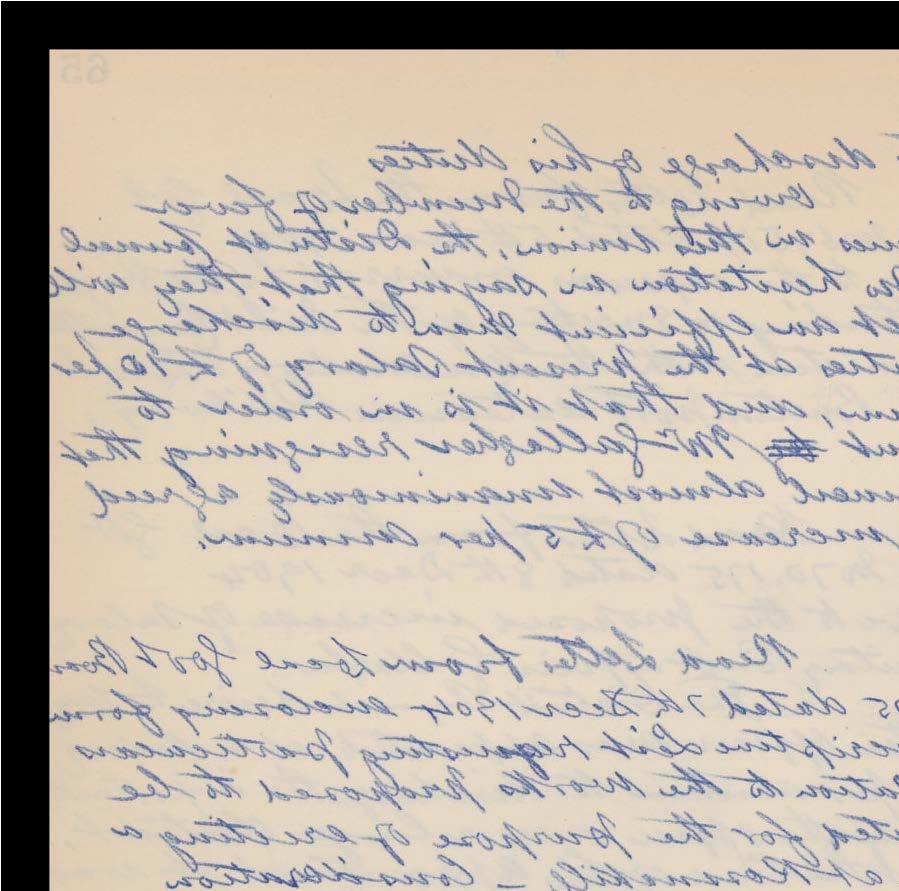 65
discharge of his duties
owing to the number of fever
in this Union, the District Council
no hesitation in saying that they will
an efficient man to discharge
at the present salary of £10 per
and that it is in order to
Mr Gallagher resigning that
almost unanimously agreed
increase of £5 per annum.
Read Letter from Local Govt Boar
05 dated 7th Decr 1904 enclosing form
criptive List requesting particulars
ation to the works proposed to be
uted for the purpose of erecting a
at Rosnakill, - Consideration